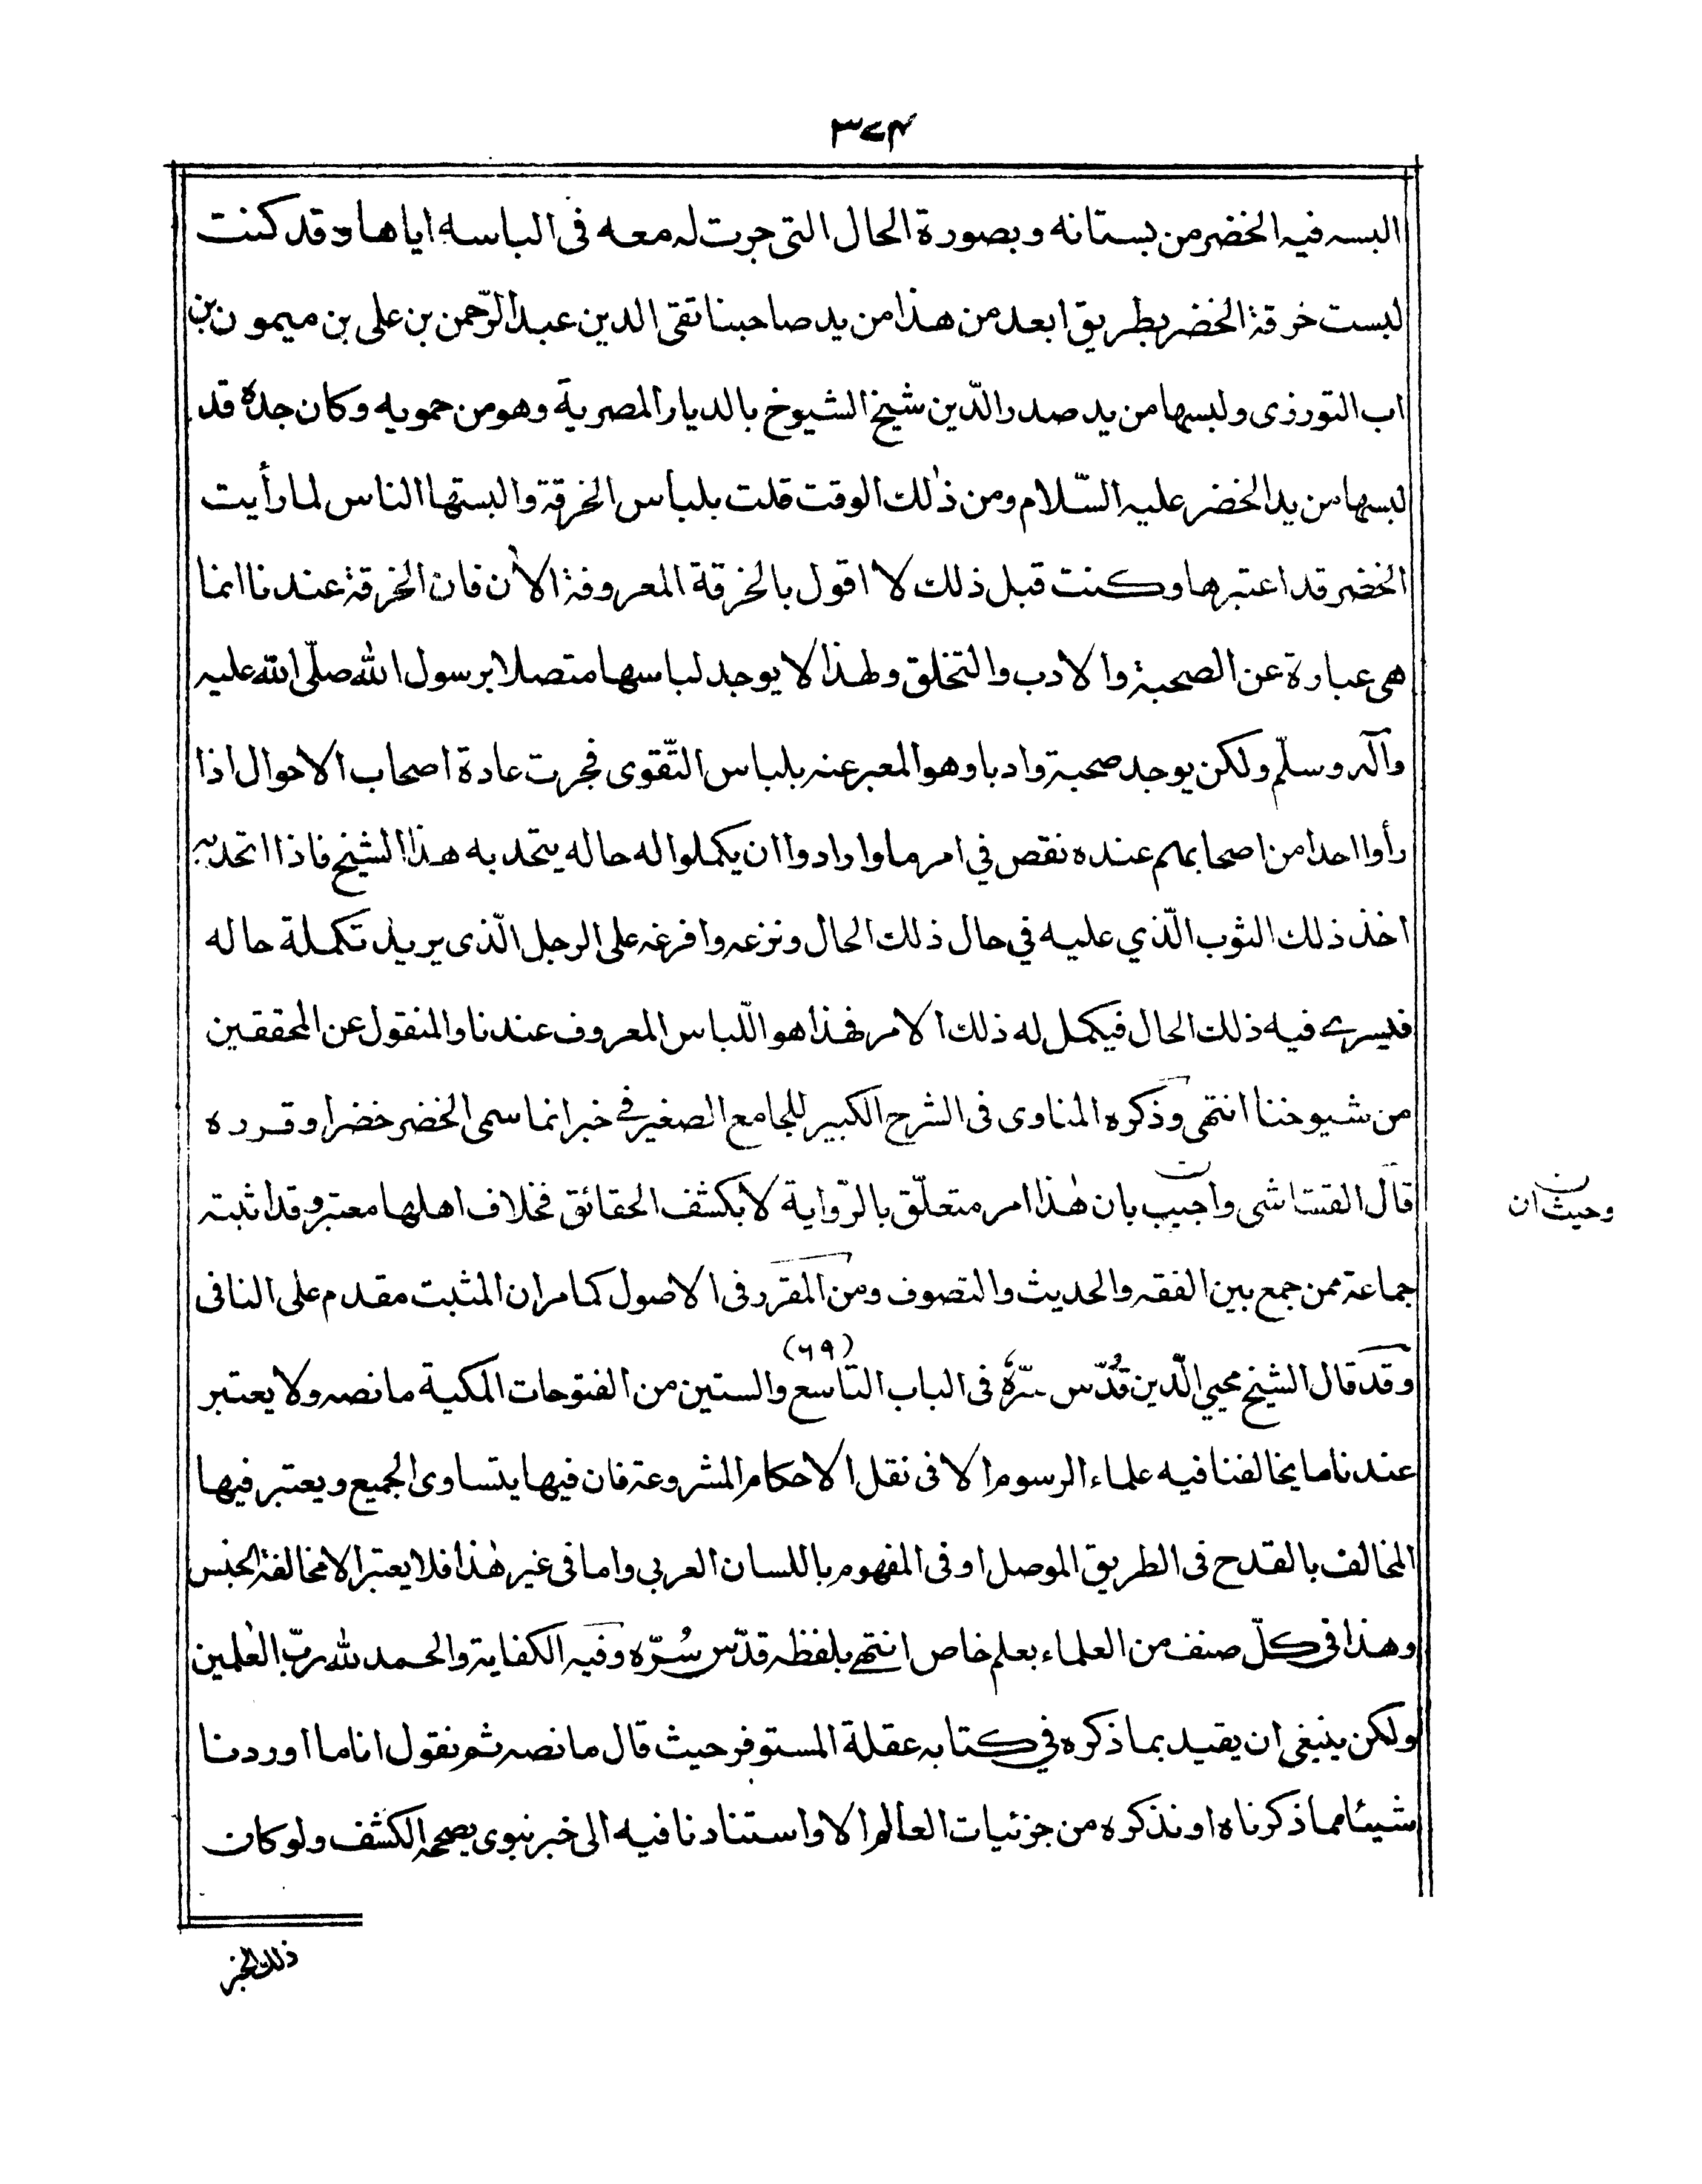 ٣٧٤
البسه فيه الخضر من بستانه وبصورة الحال التى جرت له معه فى الباسه اياها وقد كنت
لبست خرقة الخضر بطريق ابعد من هذا من يد صاحبنا تقى الدين عبد الرّحمن بن على بن ميمون بن
اب التورزى ولبسها من يد صدر الدّين شيخ الشيوخ بالديار المصرية وهو من حمويه وكان جده قد
لبسها من يد الخضر عليه السّلام ومن ذٰلك الوقت قلت بلباس الخرقة والبستها الناس لما رأيت
الخضر قد اعتبرها وكنت قبل ذلك لا اقول بالخرقة المعروفة الاٰن فان الخرقة عندنا انما
هى عبارة عن الصحبة والادب والتخلق ولهذا لا يوجد لباسها متصلا برسول الله صلّى الله عليه
وآله وسلّم ولكن يوجد صحبة وادبا وهو المعبر عنه بلباس التّقوى فجرت عادة اصحاب الاحوال اذا
رأوا احدا من اصحابهم عنده نقص في امر ما وارادوا ان يكملوا له حاله يتحد به هذا الشيخ فاذا اتحد به
اخذ ذلك الثوب الّذي عليه في حال ذلك الحال ونزعه وافرغه على الرجل الّذى يريد تكملة حاله
فيسرے فيه ذلك الحال فيكمل له ذلك الامر فهذا هو اللّباس المعروف عندنا والمنقول عن المحققين
من شيوخنا انتهى وذكره المناوى فى الشرح الكبير للجامع الصغير فے خبر انما سمى الخضر خضرا وقرره
قال القشاشى واجيب بان هٰذا امر متعلّق بالرّواية لا بكشف الحقائق فخلاف اهلها معتبر وقد اثبته
وحيث ان
جماعة ممن جمع بين الفقه والحديث والتصوف ومن المقرر فى الاصول كما مر ان المثبت مقدم على النافى
(٦٩)
وقد قال الشيخ محيي الدّين قدّس سرّه فى الباب التاسع والستين من الفتوحات المكية ما نصه ولا يعتبر
عندنا ما يخالفنا فيه علماء الرسوم الا فى نقل الاحكام المشروعة فان فيها يتساوى الجميع ويعتبر فيها
المخالف بالقدح فى الطريق الموصل او فى المفهوم باللسان العربي واما فى غير هٰذا فلا يعتبر الا مخالفة الجنس
وهذا فى كلّ صنف من العلماء بعلم خاص انتهے بلفظه قدّس سُرّه وفيه الكفاية والحمد لله ربّ العٰلمين
ولكن ينبغى ان يقيد بما ذكره في كتابه عقلة المستوفز حيث قال ما نصه ثم نقول انا ما اوردنا
شيئا مما ذكرناه او نذكره من جزئيات العالم الا واستنادنا فيه الى خبر نبوى يصححه الكشف ولو كان
ذلك الخبر